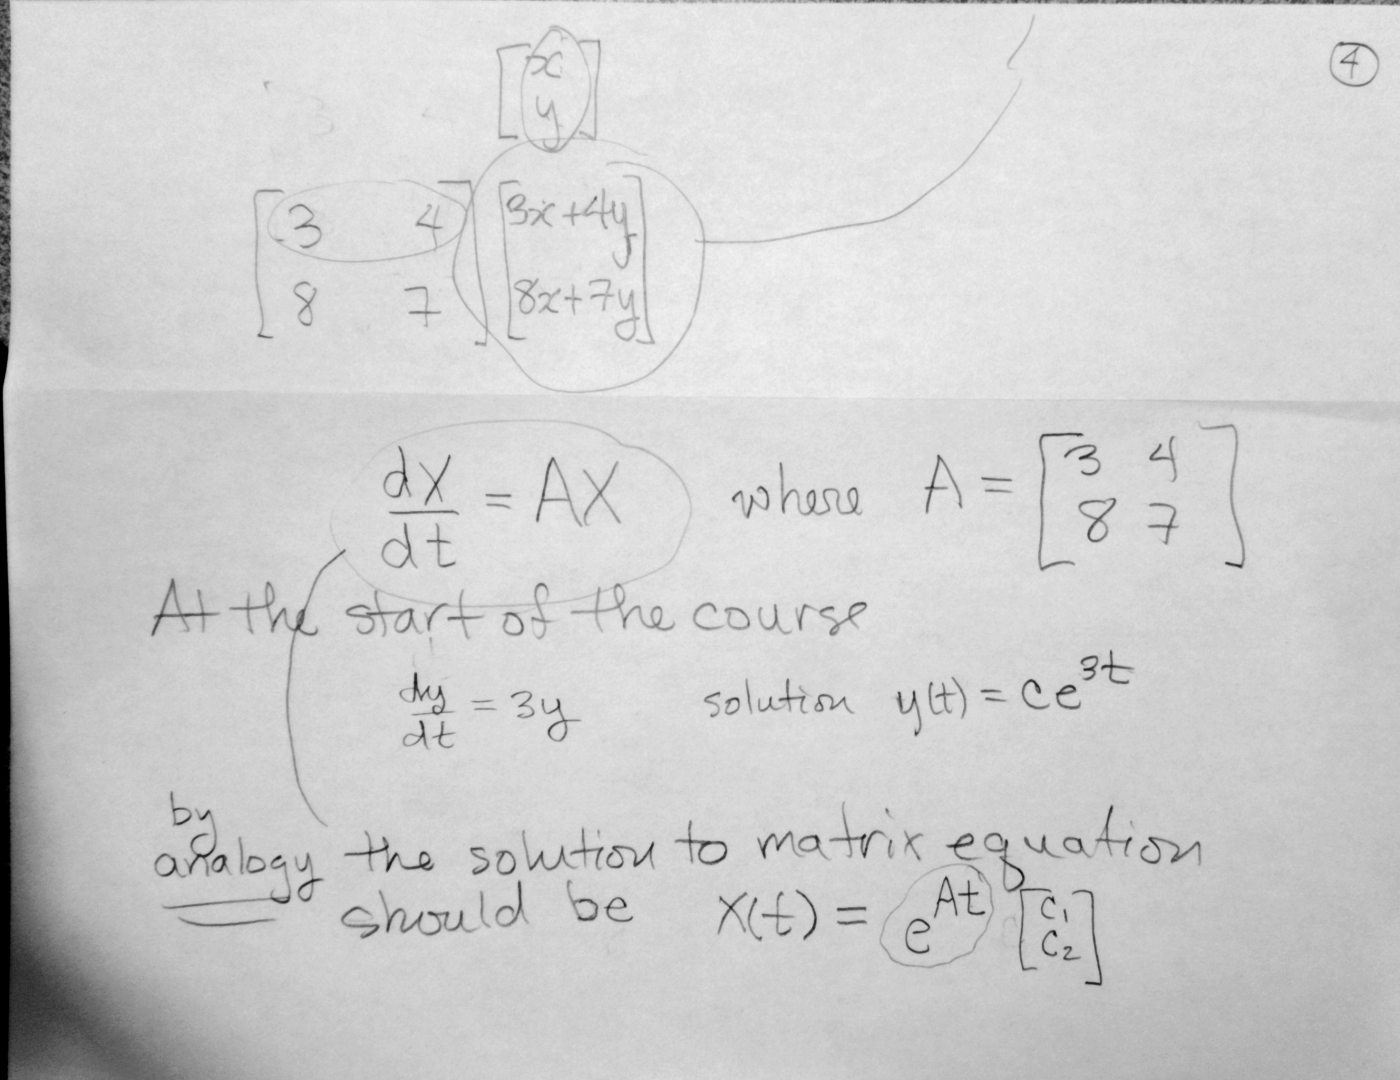 ④
[x
y]
[3 4 [3x+4y
8 7] 8x+7y]
dX/dt = AX where A = [3 4
8 7]
At the start of the course
dy/dt = 3y solution y(t) = ce^3t
by
analogy the solution to matrix equation
should be X(t) = e^At [c₁
c₂]